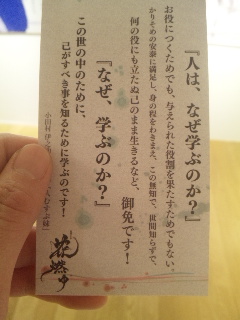 『人は、なぜ学ぶのか?』
お役につくためでも、与えられた役割を果たすためでもない。
かりそめの安泰に満足し、身の程をわきまえ、この無知で、世間知らずで、
何の役にも立たぬ己のまま生きるなど、
御免です!
『なぜ、学ぶのか?』
この世の中のために、
己がすべき事を知るために学ぶのです!
小田村伊之助
花燃ゆ